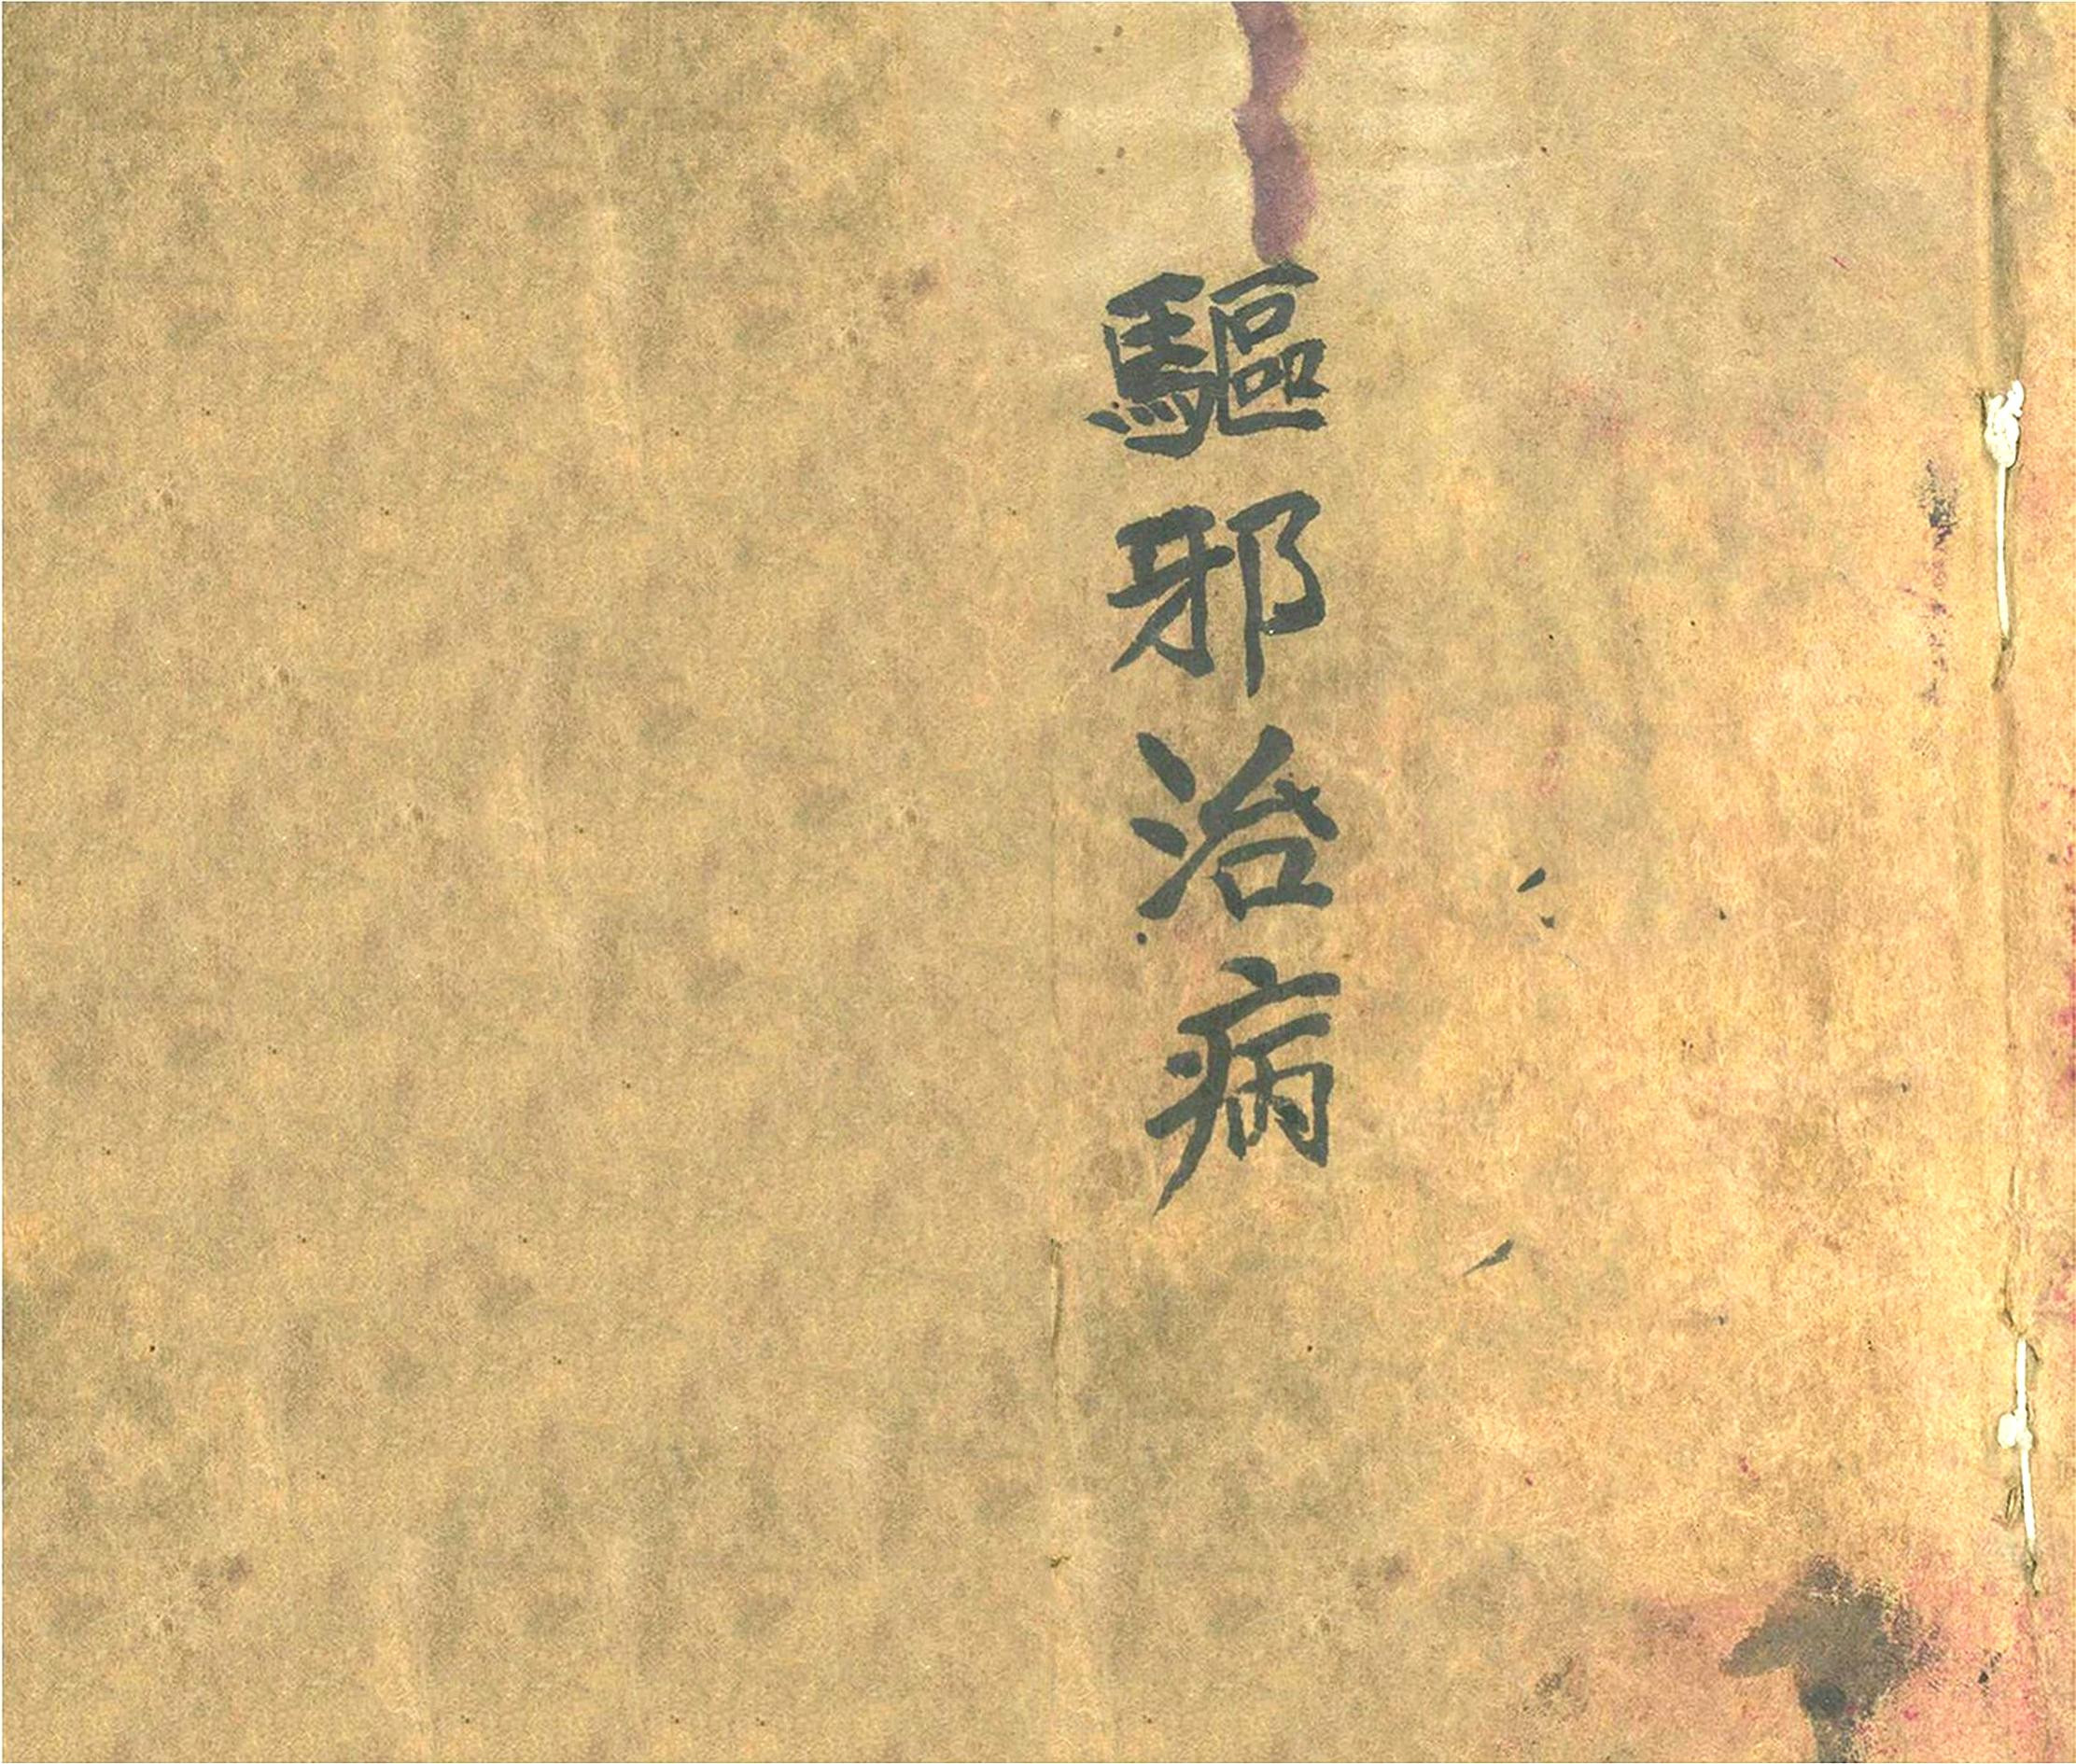 驅邪治病